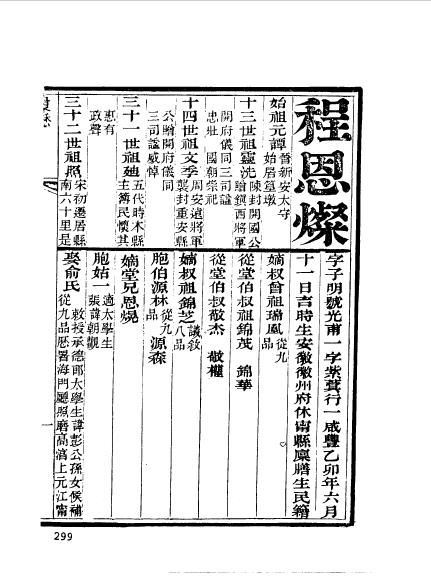 程恩燦
字子明號光甫一字紫蓂行一咸豐乙卯年六月
十一日吉時生安徽徽州府休甯縣廩膳生民籍
始祖元譚
晉新安太守
始居篁墩
十三世祖靈洗
陳封開國公
贈鎮西將軍
開府儀同三司諡
忠壯 國朝崇祀
十四世祖文季
周安遠將軍
襲封重安縣
公贈開府儀同
三司諡威悼
三十一世祖廸
五代時本縣
主簿民懷其
惠有
政聲
三十二世祖照
宋初遷居縣
南六十里是
嫡叔曾祖瑞鳳
從九
品
從堂伯叔祖錦茂 錦華
從堂伯叔敬杰 敬權
嫡叔祖錦芝
議敘
八品
胞伯源林
從九
品
源森
嫡堂兄恩焜
胞姑一
適太學生
張諱朝觀
娶俞氏
敕授承德郎太學生諱彭公孫女候補
從九品歷署海門廳照磨高淳上元江甯
一
299